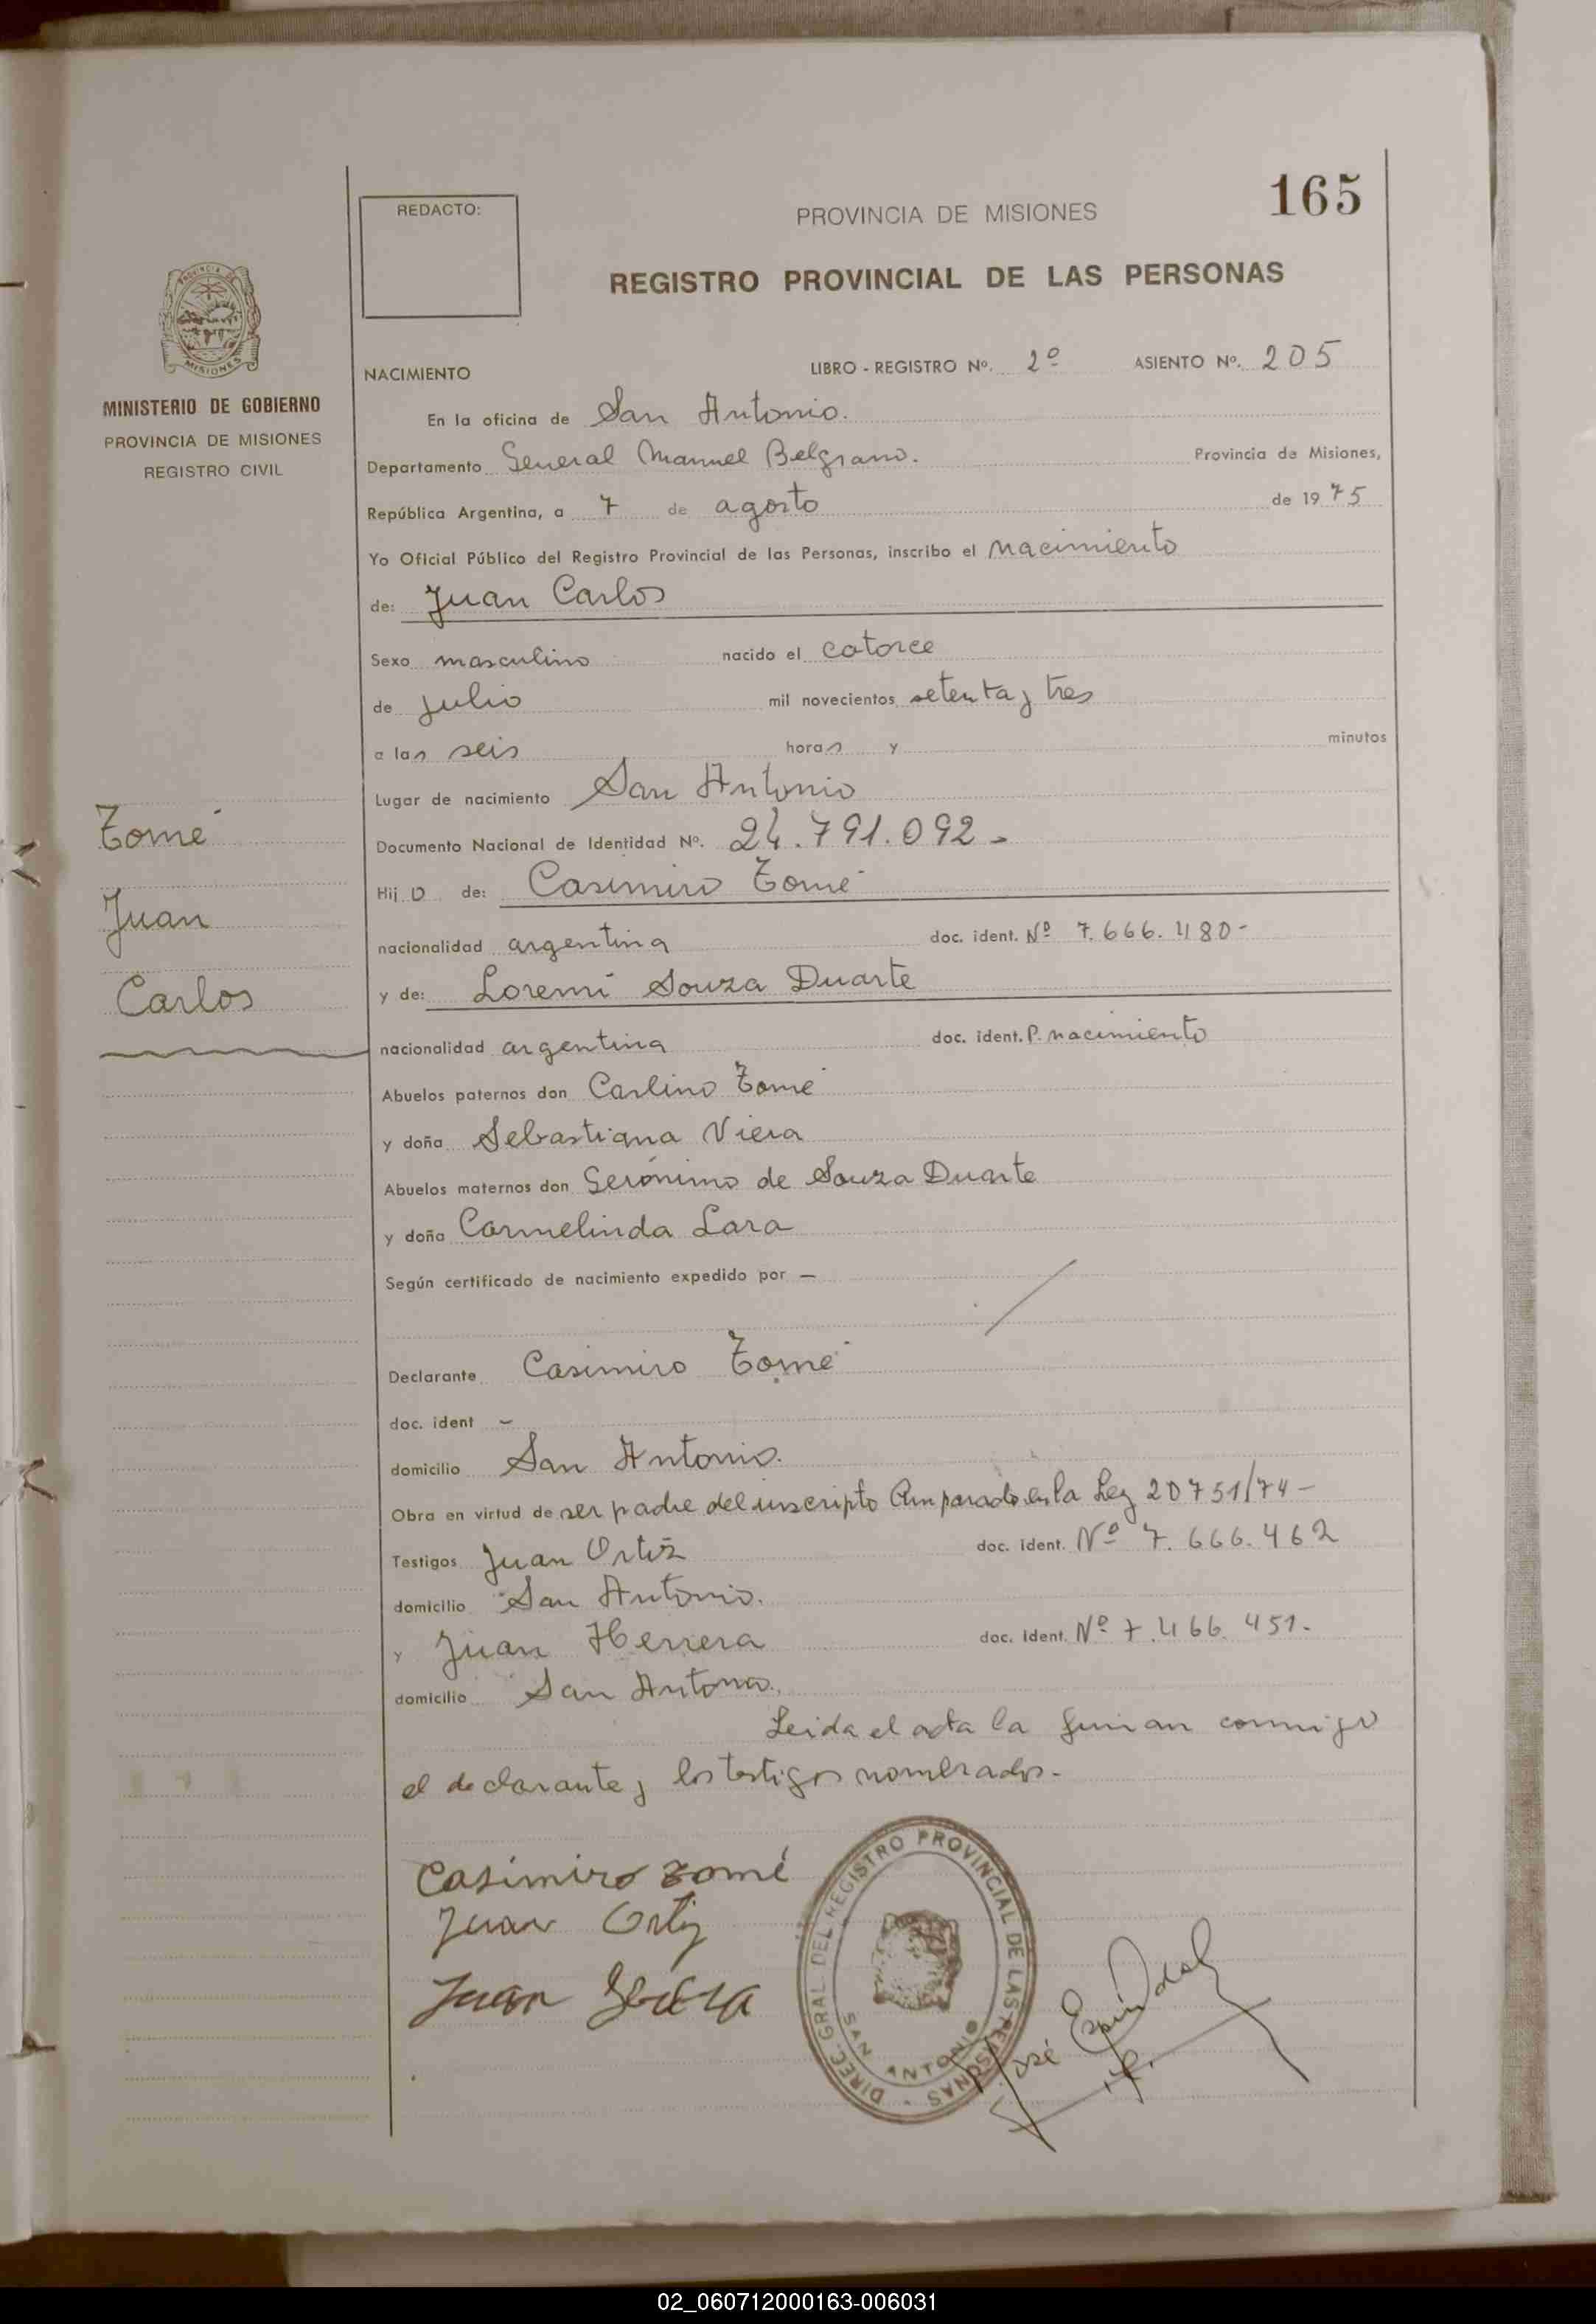 165
REDACTO:
PROVINCIA DE MISIONES
REGISTRO PROVINCIAL DE LAS PERSONAS
PROVINCIA DE
MISIONES
MINISTERIO DE GOBIERNO
PROVINCIA DE MISIONES
REGISTRO CIVIL
NACIMIENTO LIBRO - REGISTRO Nº. 2º ASIENTO Nº. 205
En la oficina de San Antonio.
Departamento General Manuel Belgrano. Provincia de Misiones,
República Argentina, a 7 de agosto de 1975
Yo Oficial Público del Registro Provincial de las Personas, inscribo el nacimiento
de: Juan Carlos
Sexo masculino nacido el catorce
de julio mil novecientos setenta y tres
a las seis horas y minutos
Lugar de nacimiento San Antonio
Tomé
Juan
Carlos
Documento Nacional de Identidad Nº. 24.791.092-
Hijo de: Casimiro Tomé
nacionalidad argentina doc. ident. Nº 7.666.480-
y de: Loremi Souza Duarte
nacionalidad argentina doc. ident. P. nacimiento
Abuelos paternos don Carlino Tomé
y doña Sebastiana Viera
Abuelos maternos don Gerónimo de Souza Duarte
y doña Carmelinda Lara
Según certificado de nacimiento expedido por -
Declarante Casimiro Tomé
doc. ident -
domicilio San Antonio.
Obra en virtud de ser padre del inscripto Amparado en la Ley 20751/74-
Testigos Juan Ortiz doc. ident. Nº 7.666.462
domicilio San Antonio.
y Juan Herrera doc. ident. Nº 7.466.451.
domicilio San Antonio.
Leida el acta la firman conmigo
el declarante y los testigos nombrados-
Casimiro Tomé
Juan Ortiz
Juan
DIREC. GRAL. DEL REGISTRO PROVINCIAL DE LAS PERSONAS
SAN ANTONIO
José Espíndola
02_060712000163-006031